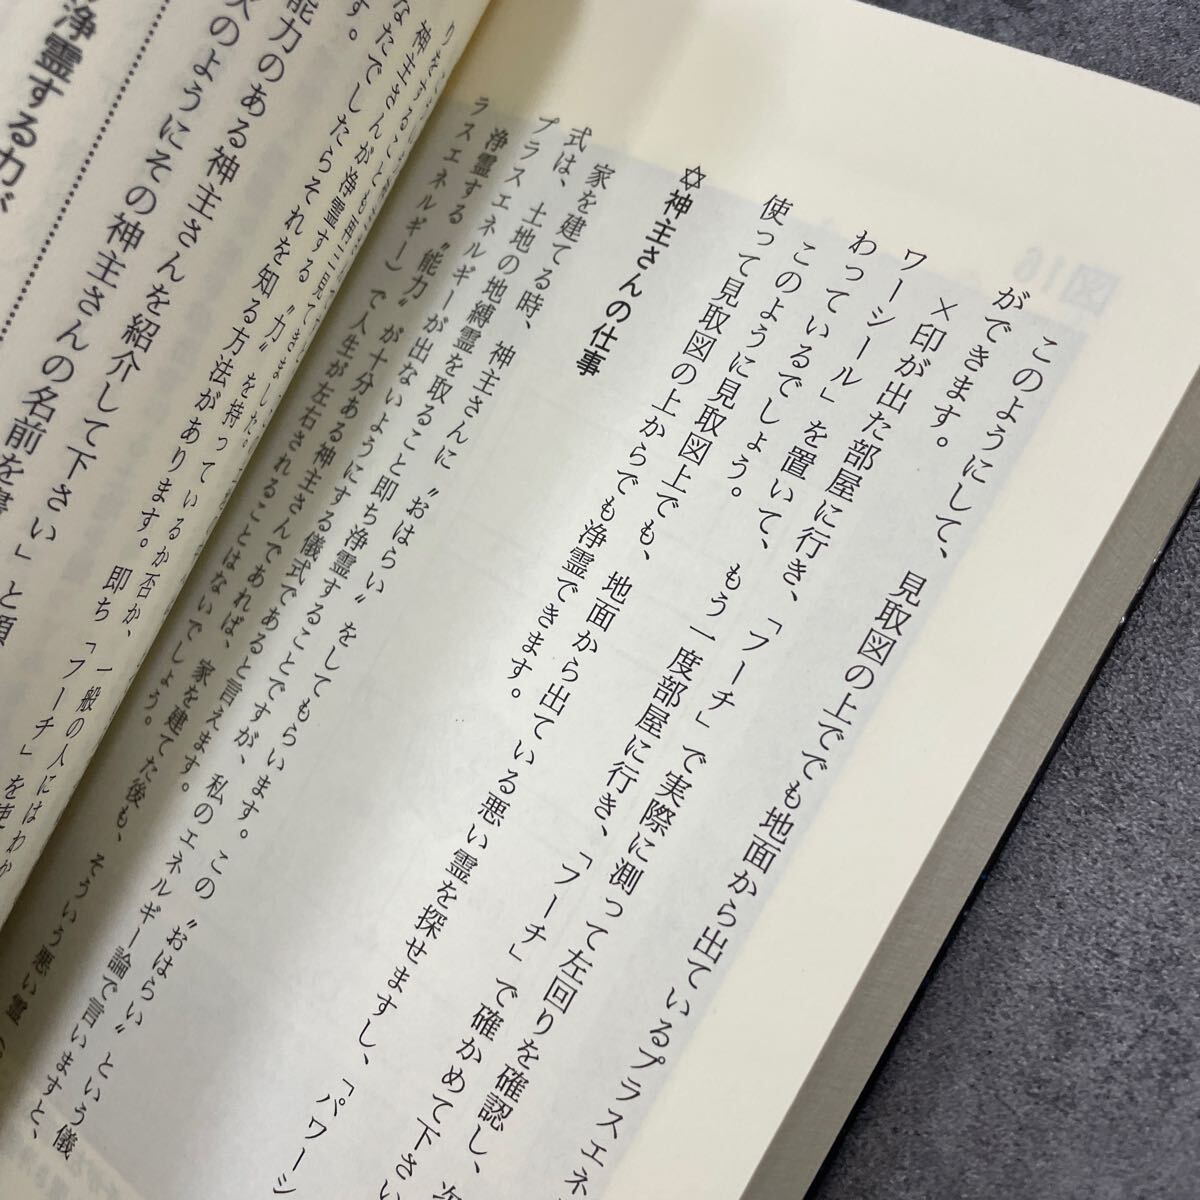 このようにして、見取図の上ででも地面から出ているプラスエネ
ができます。
×印が出た部屋に行き、「フーチ」で実際に測って左回りを確認し、次
ワーシール」を置いて、もう一度部屋に行き、「フーチ」で確かめて下さい
わっているでしょう。
このように見取図上でも、地面から出ている悪い霊を探せますし、「パワーシ
使って見取図の上からでも浄霊できます。
✡神主さんの仕事
家を建てる時、神主さんに〝おはらい〟をしてもらいます。この〝おはらい〟という儀
式は、土地の地縛霊を取ること即ち浄霊することですが、私のエネルギー論で言いますと、
プラスエネルギーが出ないようにする儀式であると言えます。
浄霊する〝能力〟が十分ある神主さんであれば、家を建てた後も、そういう悪い霊
ラスエネルギー)で人生が左右されることはないでしょう。
神主さんが浄霊する〝力〟を持っているか否か、一般の人にはわか
なたでしたらそれを知る方法があります。即ち「フーチ」を使
す。
能力のある神主さんを紹介して下さい」と頭
次のようにその神主さんの名前を
浄霊する力が
図16